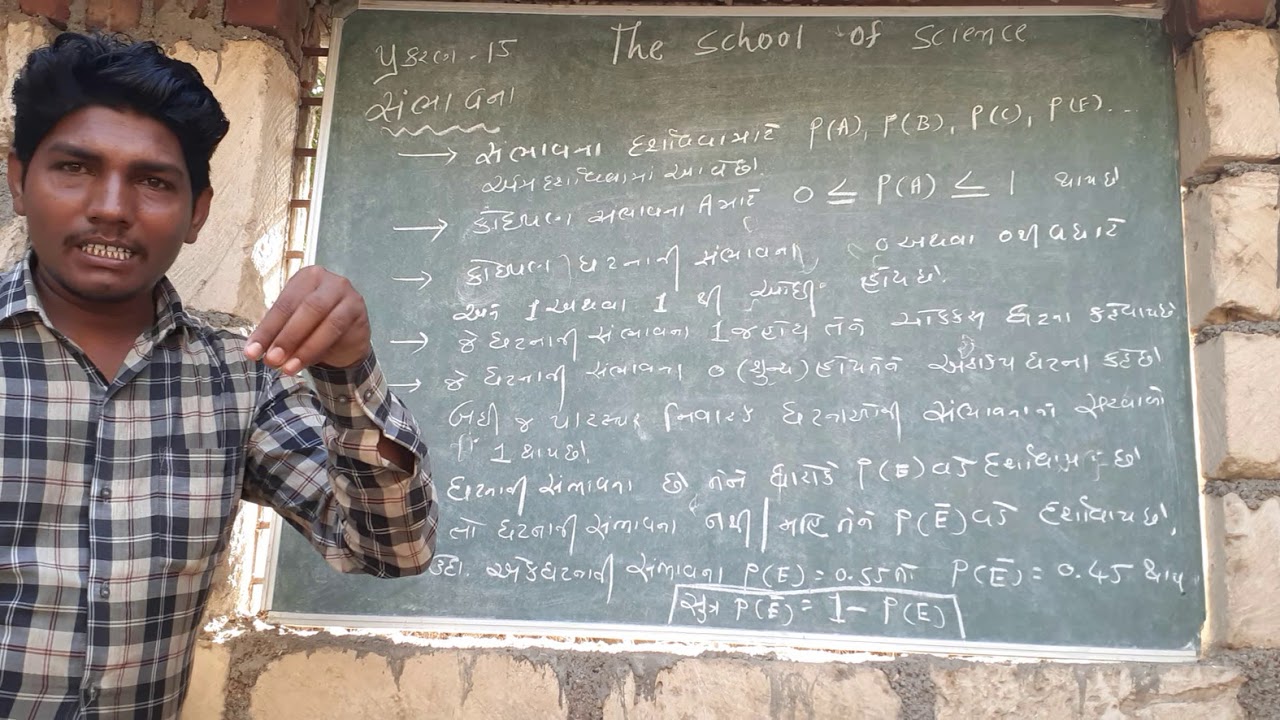 પ્રકરણ - 15 The School of Science
સંભાવના
→ સંભાવના દર્શાવવા માટે P(A), P(B), P(C), P(E)...
એમ દર્શાવવામાં આવે છે.
→ કોઈપણ સંભાવના A માટે 0 ≤ P(A) ≤ 1 થાય છે
→ કોઈપણ ઘટનાની સંભાવના 0 અથવા 0 થી વધારે
અને 1 અથવા 1 થી ઓછી હોય છે.
→ જે ઘટનાની સંભાવના 1 જ હોય તેને ચોક્કસ ઘટના કહેવાય છે
→ જે ઘટનાની સંભાવના 0 (શુન્ય) હોય તેને અશક્ય ઘટના કહે છે
બધી જ પારસ્પર નિવારક ઘટનાઓની સંભાવનાનો સરવાળો
1 થાય છે.
ઘટનાની સંભાવના છે તેને ધારોકે P(E) વડે દર્શાવાય છે
તો ઘટનાની સંભાવના નથી/નહિ તેને P(E̅) વડે દર્શાવાય છે,
ઉદા. એક ઘટનાની સંભાવના P(E) = 0.55 તો P(E̅) = 0.45 થાય
સુત્ર P(E̅) = 1 - P(E)